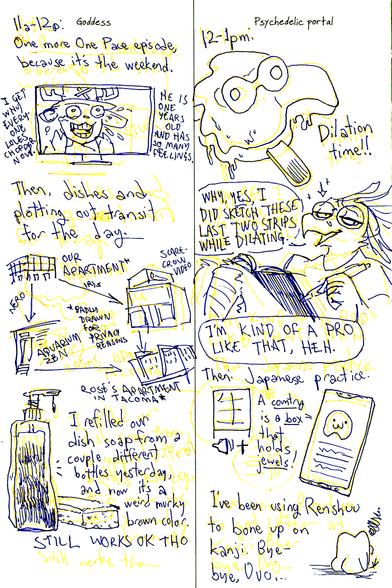 Goddess
11a-12p:
One more One Pace episode,
because it's the weekend.
I GET
WHY
EVERY
ONE
LOVES
CHOPPER
NOW!
HE IS
ONE
YEARS
OLD
AND HAS
SO MANY
FEELINGS.
Then, dishes and
plotting out transit
for the day.
OUR
APARTMENT*
SCARE-
CROW
VIDEO
*BADLY
DRAWN
FOR
PRIVACY
REASONS
AQUARIUM
ZEN
ROSE'S APARTMENT
IN TACOMA*
I refilled our
dish soap from a
couple different
bottles yesterday,
and now it's a
weird murky
brown color.
STILL WORKS OK THO
Psychedelic portal
12-1pm:
Dilation
time!!
WHY, YES, I
DID SKETCH THESE
LAST TWO STRIPS
WHILE DILATING.
I'M KIND OF A PRO
LIKE THAT, HEH.
Then Japanese practice.
A country
is a box
that
holds
jewels!
I've been using Renshuu
to bone up on
kanji. Bye-
bye, Duo...